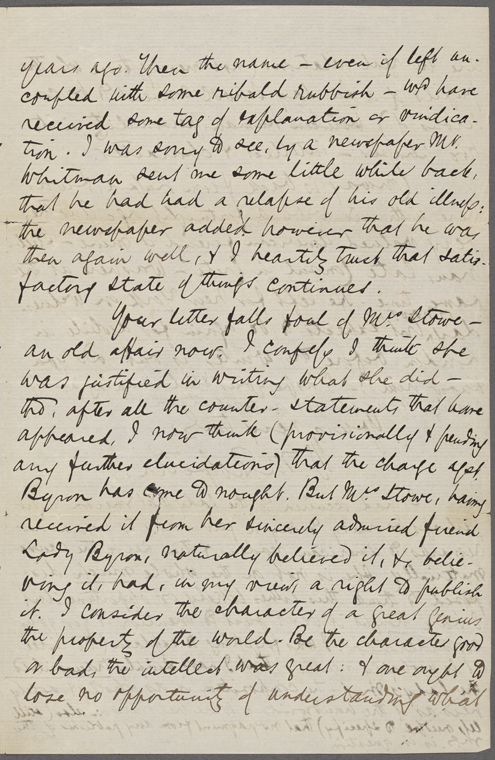 years ago. Then the name — even if left un-
coupled with some ribald rubbish — wd have
received some tag of explanation or vindica-
tion. I was sorry to see, by a newspaper Mr.
Whitman sent me some little while back,
that he had had a relapse of his old illness:
the newspaper added however that he was
then again well, & I heartily trust that satis-
factory state of things continues.
Your letter falls foul of Mrs Stowe —
an old affair now. I confess I think she
was justified in writing what she did —
tho', after all the counter-statements that have
appeared, I now think (provisionally & pending
any further elucidations) that the charge agst
Byron has come to nought. But Mrs Stowe, having
received it from her sincerely admired friend
Lady Byron, naturally believed it, &, belie-
ving it, had, in my view, a right to publish
it. I consider the character of a great genius
the property of the world. Be the character good
or bad, the intellect was great: & one ought to
lose no opportunity of understanding what